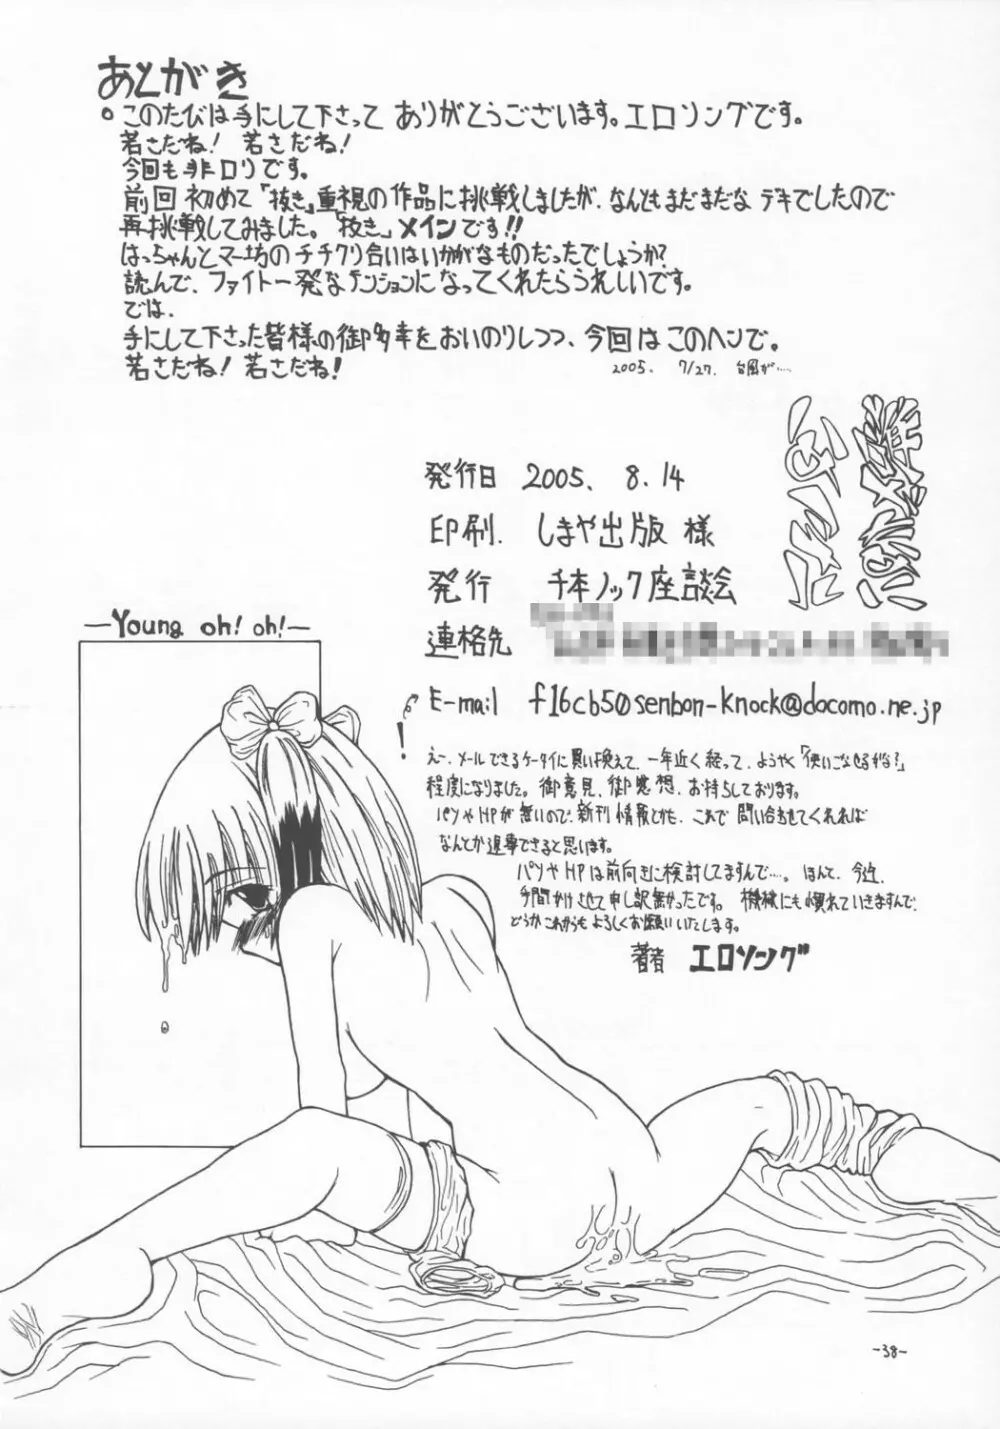 あとがき
。このたびは手にして下さって ありがとうございます。エロソングです。
若さだね! 若さだね!
今回も非ロリです。
前回初めて「抜き」重視の作品に挑戦しましたが、なんともまだまだな デキでしたので
再挑戦してみました。「抜き」メインです!!
はっちゃんとマー坊のチチクリ合いはいかがなものだったでしょうか?
読んで、ファイト一発なテンションになってくれたらうれしいです。
では、
手にして下さった皆様の御多幸をおいのりしつつ、今回はこのヘンで。
若さだね! 若さだね!
2005. 7/27. 台風が……
発行日 2005. 8.14
印刷. しまや出版 様
発行 千本ノック座談会
連絡先
E-mail f16cb50senbon-knock@docomo.ne.jp
えー、メールできるケータイに買い換えて、一年近く経って、ようやく「使いこなせるかな?」
程度になりました。御意見、御感想、お持ちしております。
パソやHPが無いので、新刊情報とかも、これで問い合わせてくれれば
なんとか返事できると思います。
パソやHPは前向きに検討してますんで…。ほんて、今迄
手間かけさせて申し訳無かったです。機械にも慣れていきますんで、
どうかこれからもよろしくお願いいたします。
著者 エロソング
—Young oh! oh!—
-38-